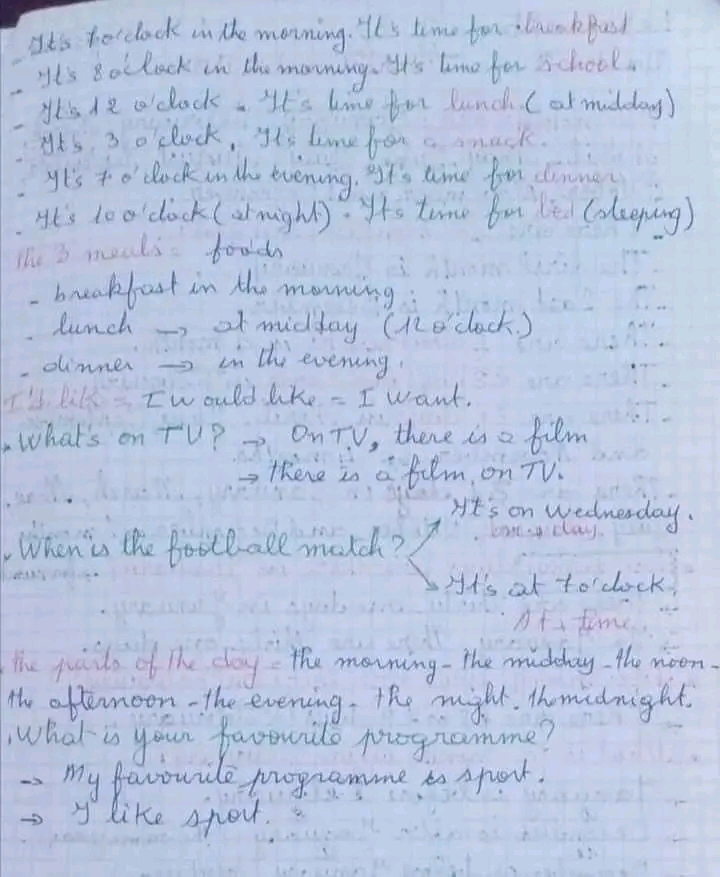 - It's 7 o'clock in the morning. It's time for breakfast
- It's 8 o'clock in the morning. It's time for school.
- It's 12 o'clock. It's time for lunch (at midday)
- It's 3 o'clock, It's time for a snack.
- It's 7 o'clock in the evening. It's time for dinner
- It's 10 o'clock (at night). It's time for bed (sleeping)
the 3 meals = foods
- breakfast in the morning
- lunch → at midday (12 o'clock.)
- dinner → in the evening.
I'd like = I would like = I want.
. What's on TV? → On TV, there is a film
→ there is a film, on TV.
It's on Wednesday.
on + day.
. When is the football match?
It's at 7 o'clock.
At + time.
. the parts of the day = the morning - the midday - the noon -
the afternoon - the evening - the night. the midnight.
. What is your favourite programme?
→ My favourite programme is sport.
→ I like sport.